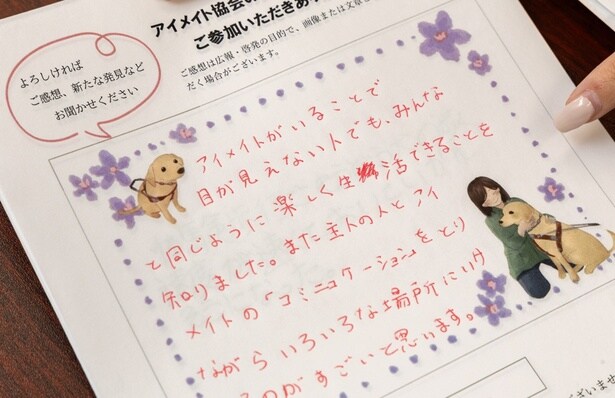 アイメイト協会の
ご参加いただきあ
ご感想は広報・啓発の目的で、画像または文章と
だく場合がございます。
よろしければ
ご感想、新たな発見など
お聞かせください
アイメイトがいることで
目が見えない人でも、みんな
と同じように楽しく生活できることを
知りました。また主人の人とアイ
メイトの「コミニコケーション」をとり
ながらいろいろな場所にいけ
るのがすごいと思います。
ございませ